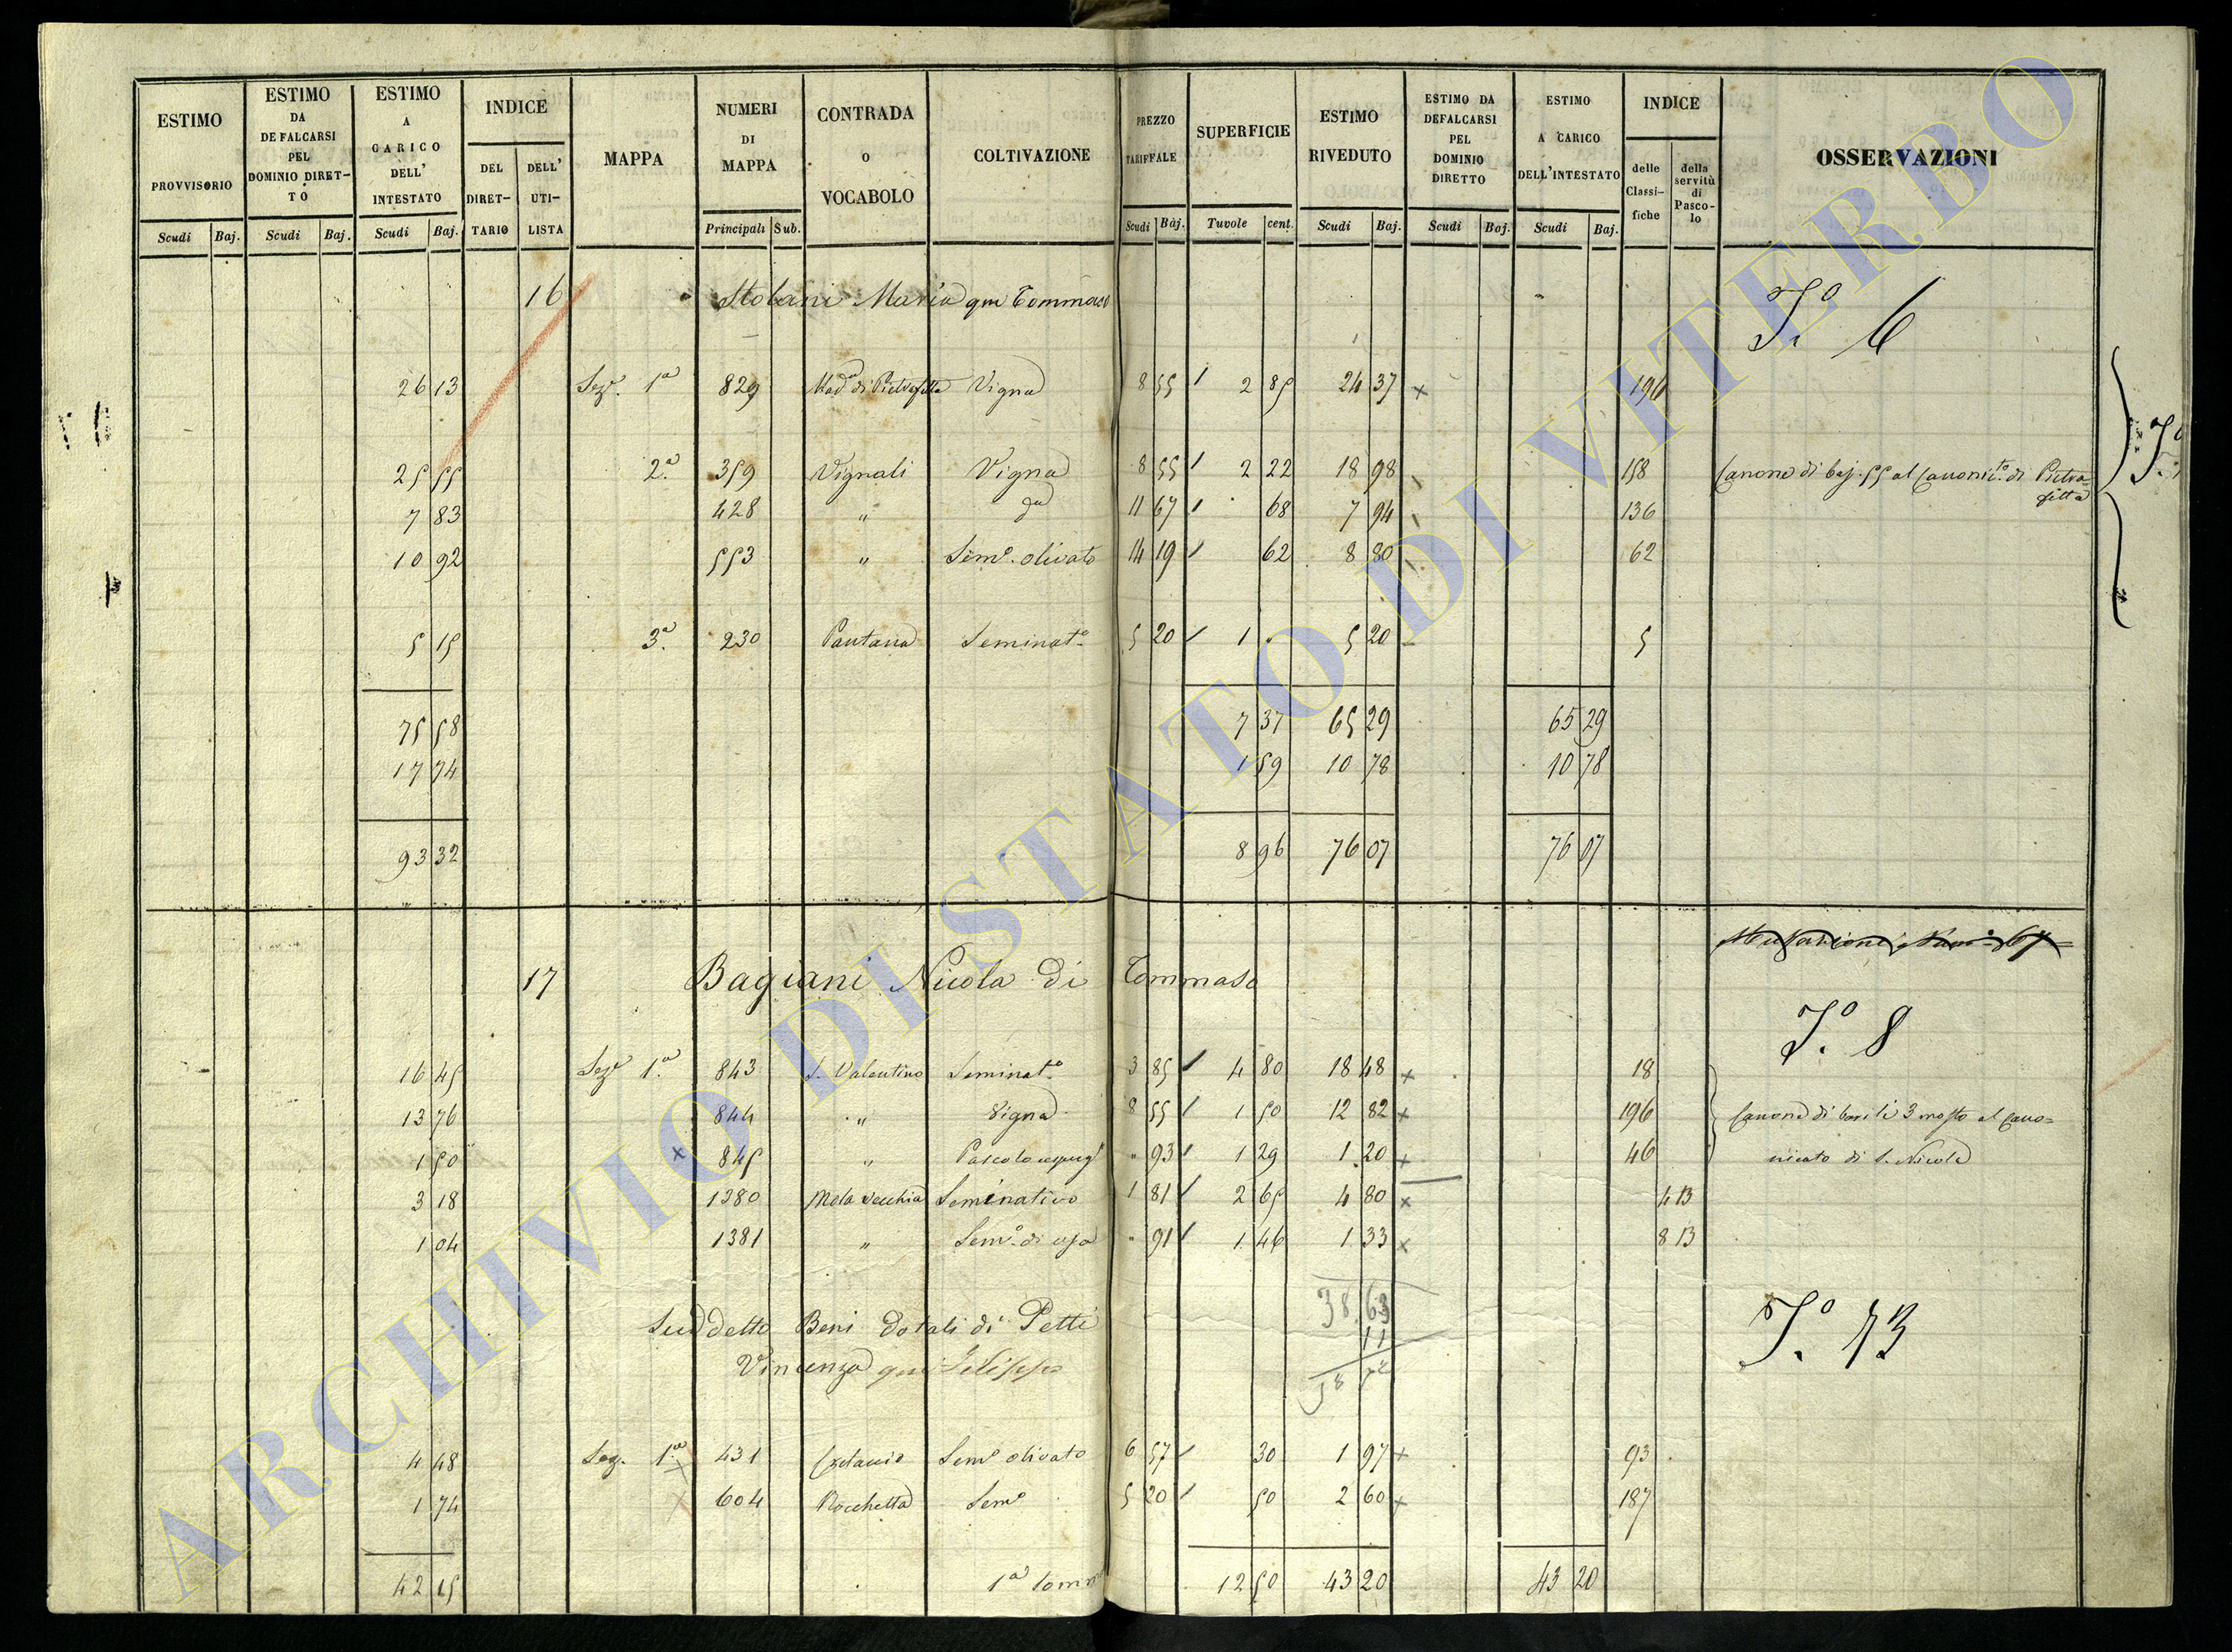 ESTIMO PROVVISORIO | ESTIMO DA DEFALCARSI PEL DOMINIO DIRET-TO | ESTIMO A CARICO DELL' INTESTATO | INDICE DEL DIRET-TARIO | DELL' UTI-LISTA | MAPPA | NUMERI DI MAPPA | CONTRADA O VOCABOLO | COLTIVAZIONE | PREZZO TARIFFALE | SUPERFICIE | ESTIMO RIVEDUTO | ESTIMO DA DEFALCARSI PEL DOMINIO DIRETTO | ESTIMO A CARICO DELL'INTESTATO | INDICE delle Classi-fiche | della servitù di Pasco-lo | OSSERVAZIONI
Scudi Baj. Scudi Baj. Scudi Baj. Principali Sub. Scudi Baj. Tavole cent. Scudi Baj. Scudi Baj. Scudi Baj.
16 Maria qm Tommaso Io. 6
26 13 Sezе. 1a 829 Mada di Pietrafitta Vigna 8 55 2 85 24 37 196
25 55 2a 359 Vignali Vigna 8 55 2 22 18 98 158 Canone di baj. 55 al Canonicto. di Pietra=
fitta
7 83 428 " da 11 67 68 7 94 136
10 92 553 " Semo. olivato 14 19 62 8 80 62
5 15 3a 230 Pantana Seminato. 5 20 1 . 5 20 5
75 58 7 37 65 29 65 29
17 74 1 59 10 78 10 78
93 32 8 96 76 07 76 07
17 Bagiani Nicola di Tommaso
Io. 8
16 45 Seze 1a 843 S. Valentino Seminato. 3 85 4 80 18 48 18
13 76 844 " Vigna 8 55 1 50 12 82 196 Canone di barili 3 mosto al Cano=
1 50 845 " Pascolo 93 1 29 1 20 46 nicato di S. Nicola
3 18 1380 Mola vecchia Seminativo 1 81 2 65 4 80 4 13
1 04 1381 " Semo. di 91 1 46 1 33 8 13
38.63
11
Suddetto Beni dotali di Petti Io. 13
Vincenza qm Felippo
4 48 Sez. 1a 431 Semo olivato 6 57 30 1 97 93
1 74 604 Rocchetta Semo 5 20 50 2 60 187
42 15 1a Somma 12 50 43 20 43 20
ARCHIVIO DI STATO DI VITERBO